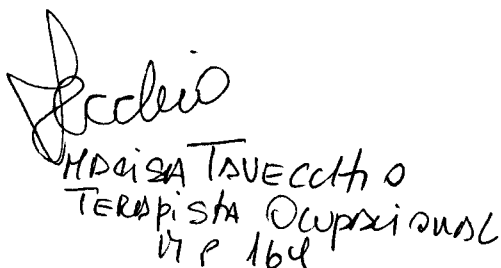 Tavecchio
MARISA TAVECCHIO
TERAPISTA OCUPACIONAL
M P 164